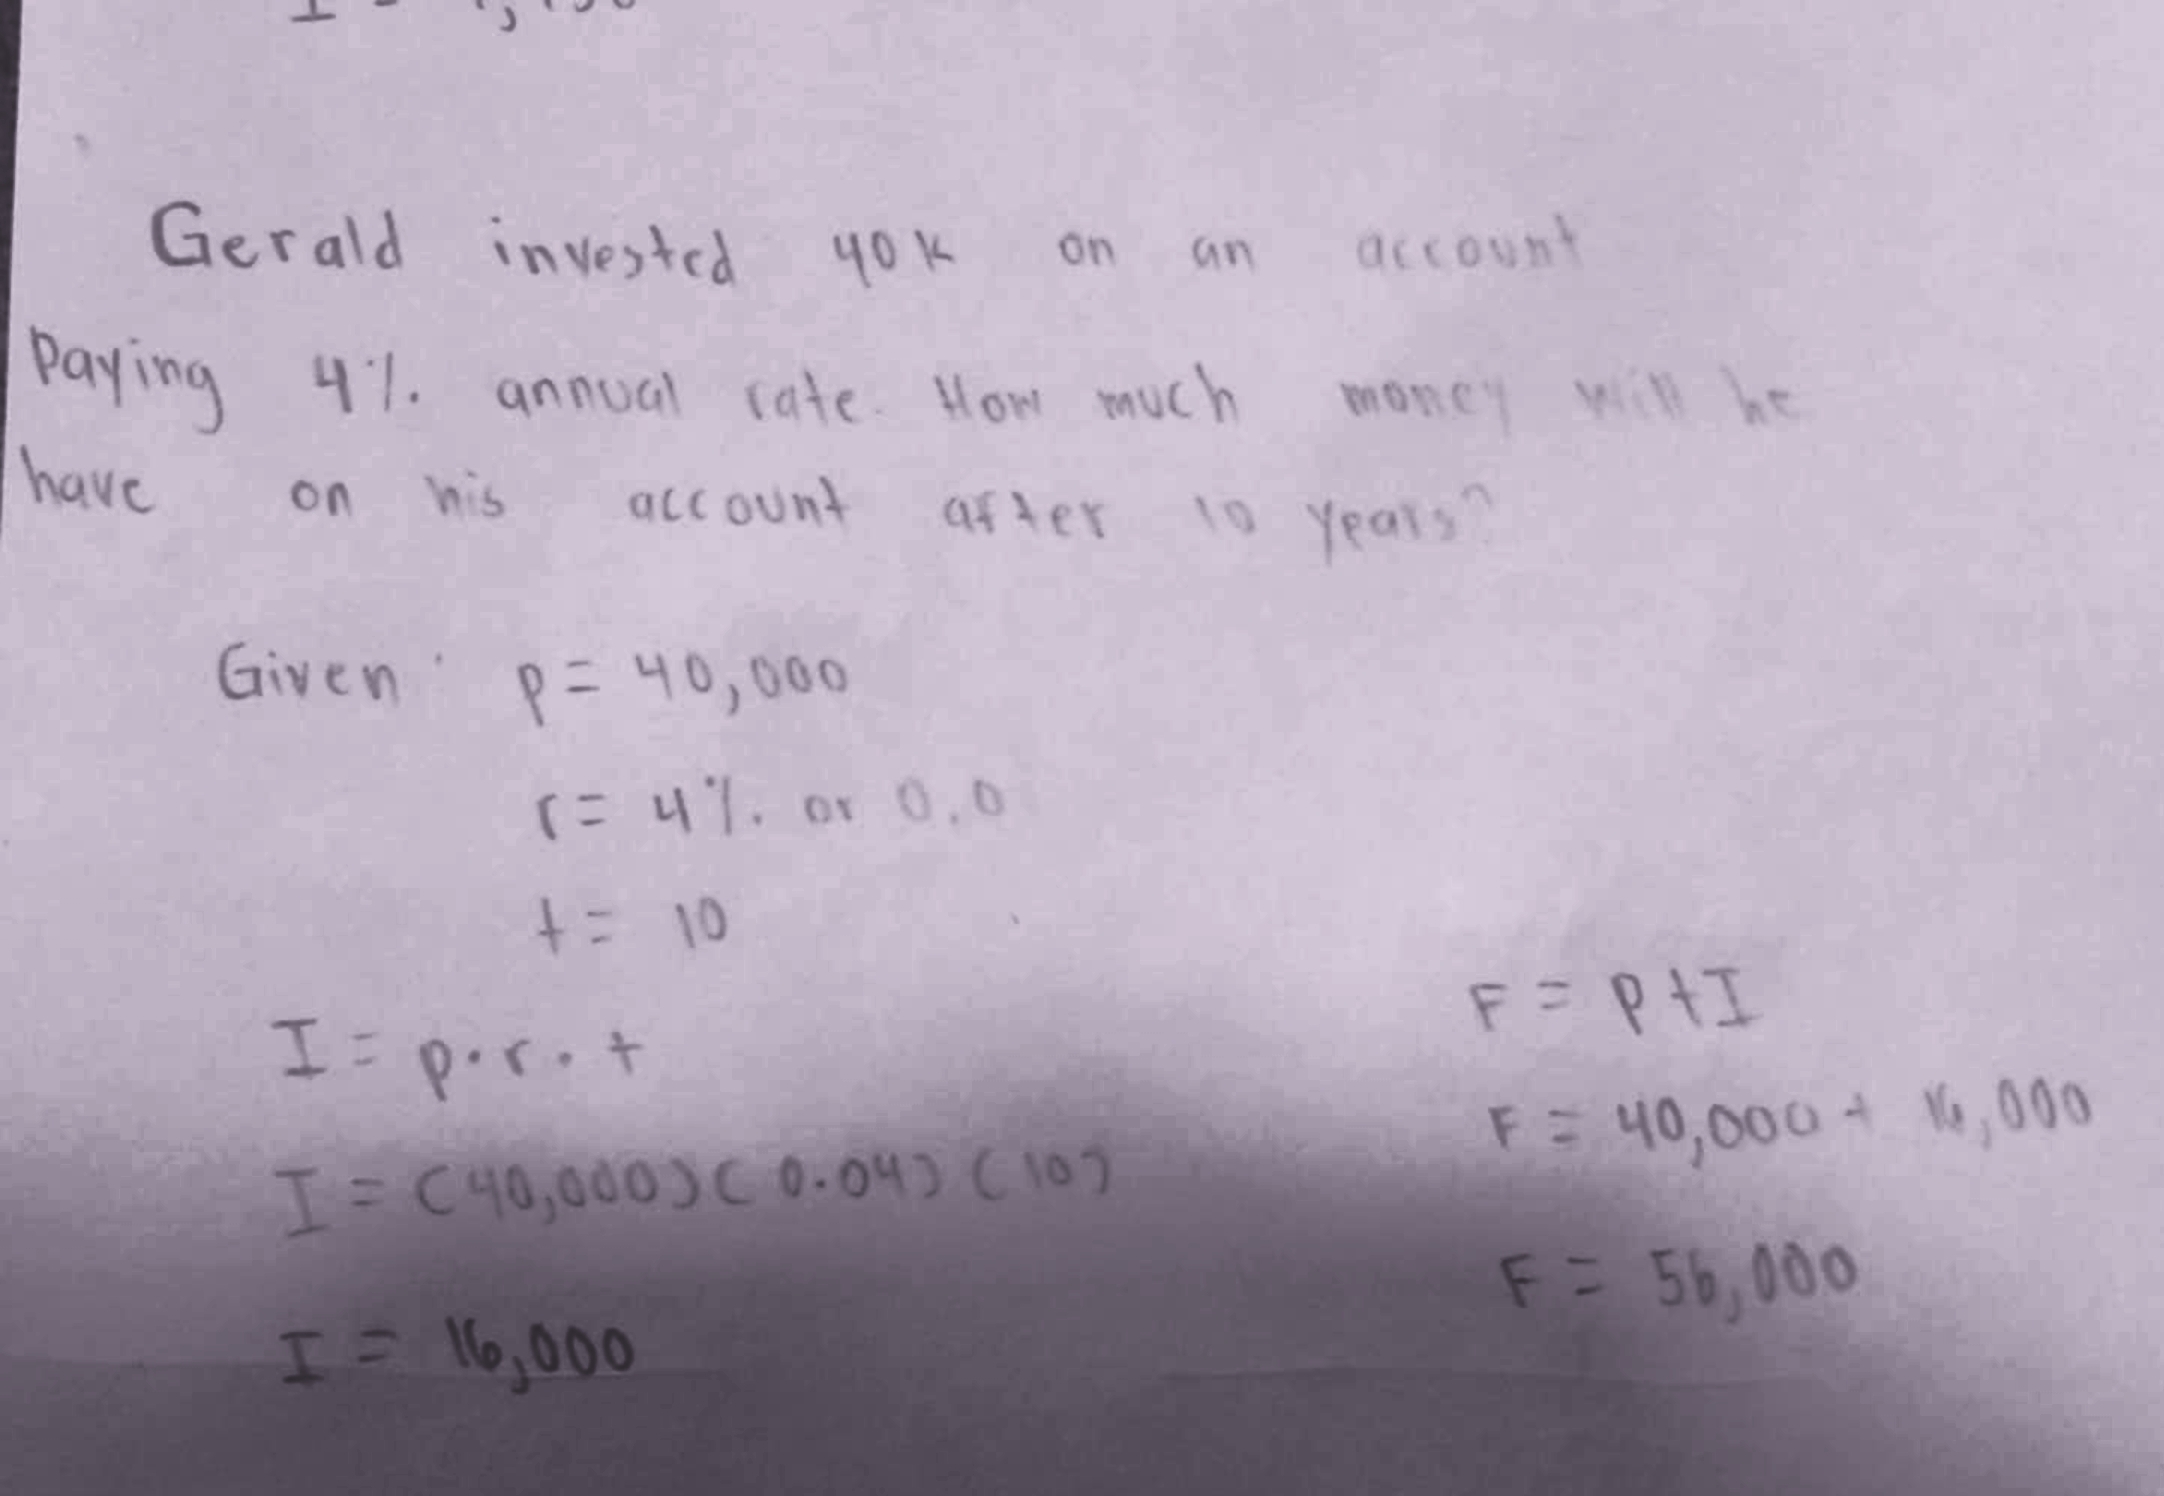 Gerald invested 40k on an account
Paying 4% annual rate. How much money will he
have on his account after 10 years?
Given: p = 40,000
r = 4% or 0.0
t = 10
I = p·r·t
I = (40,000)(0.04)(10)
I = 16,000
F = p+I
F = 40,000 + 16,000
F = 56,000